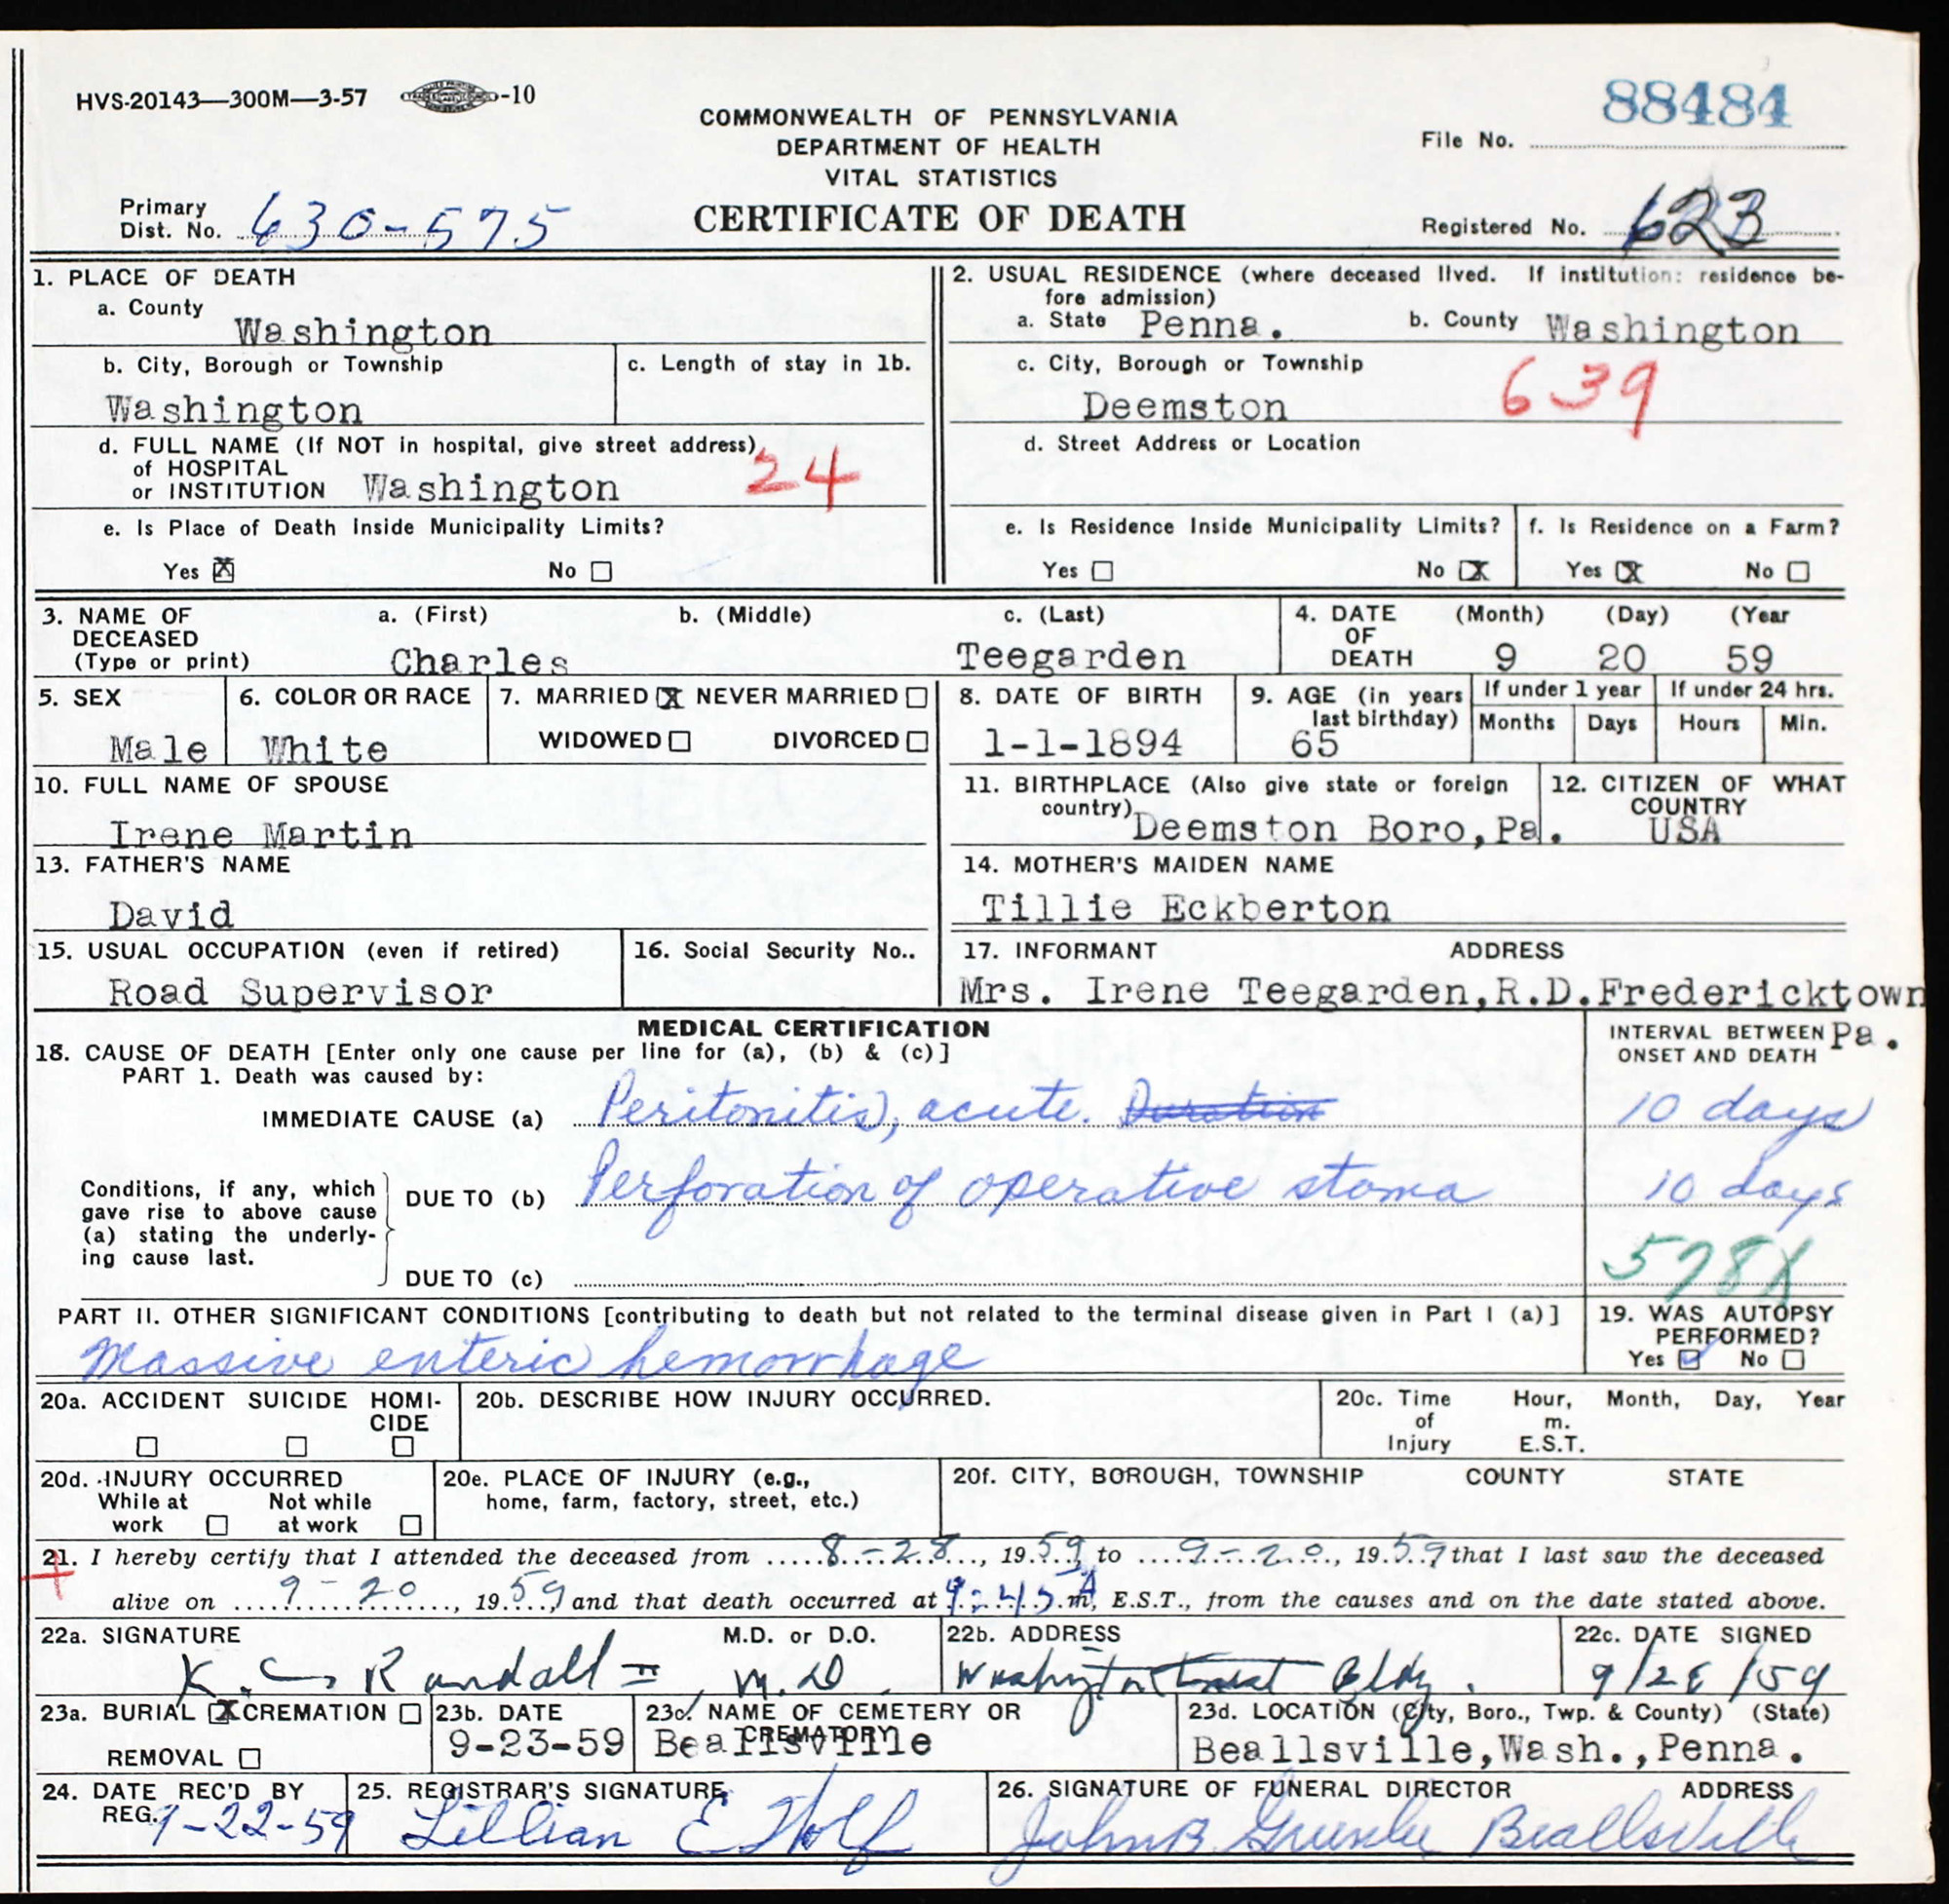 HVS-20143—300M—3-57 -10
88484
COMMONWEALTH OF PENNSYLVANIA
DEPARTMENT OF HEALTH
VITAL STATISTICS
CERTIFICATE OF DEATH
File No.
Primary
Dist. No. 630-575
Registered No. 623
1. PLACE OF DEATH
a. County
Washington
b. City, Borough or Township
Washington
c. Length of stay in 1b.
d. FULL NAME (If NOT in hospital, give street address)
of HOSPITAL
or INSTITUTION Washington
24
e. Is Place of Death Inside Municipality Limits?
Yes ☒ No ☐
2. USUAL RESIDENCE (where deceased lived. If institution: residence be-
fore admission)
a. State Penna. b. County Washington
c. City, Borough or Township
Deemston
639
d. Street Address or Location
e. Is Residence Inside Municipality Limits?
Yes ☐ No ☒
f. Is Residence on a Farm?
Yes ☒ No ☐
3. NAME OF DECEASED
(Type or print)
a. (First) b. (Middle) c. (Last)
Charles Teegarden
4. DATE OF DEATH
(Month) (Day) (Year
9 20 59
5. SEX
Male
6. COLOR OR RACE
White
7. MARRIED ☒ NEVER MARRIED ☐
WIDOWED ☐ DIVORCED ☐
8. DATE OF BIRTH
1-1-1894
9. AGE (in years
last birthday)
65
If under 1 year
Months Days
If under 24 hrs.
Hours Min.
10. FULL NAME OF SPOUSE
Irene Martin
11. BIRTHPLACE (Also give state or foreign
country)
Deemston Boro,Pa.
12. CITIZEN OF WHAT
COUNTRY
USA
13. FATHER'S NAME
David
14. MOTHER'S MAIDEN NAME
Tillie Eckberton
15. USUAL OCCUPATION (even if retired)
Road Supervisor
16. Social Security No..
17. INFORMANT ADDRESS
Mrs. Irene Teegarden,R.D.Fredericktown
Pa.
MEDICAL CERTIFICATION
18. CAUSE OF DEATH [Enter only one cause per line for (a), (b) & (c)]
PART 1. Death was caused by:
INTERVAL BETWEEN
ONSET AND DEATH
IMMEDIATE CAUSE (a) Peritonitis, acute. Duration 10 days
Conditions, if any, which
gave rise to above cause
(a) stating the underly-
ing cause last.
DUE TO (b) Perforation of operative stoma 10 days
DUE TO (c)
578X
PART II. OTHER SIGNIFICANT CONDITIONS [contributing to death but not related to the terminal disease given in Part I (a)]
Massive enteric hemorrhage
19. WAS AUTOPSY
PERFORMED?
Yes ☑ No ☐
20a. ACCIDENT SUICIDE HOMI-
CIDE
☐ ☐ ☐
20b. DESCRIBE HOW INJURY OCCURRED.
20c. Time of Injury
Hour, Month, Day, Year
m.
E.S.T.
20d. INJURY OCCURRED
While at work ☐ Not while at work ☐
20e. PLACE OF INJURY (e.g.,
home, farm, factory, street, etc.)
20f. CITY, BOROUGH, TOWNSHIP COUNTY STATE
21. I hereby certify that I attended the deceased from 8-28, 1959 to 9-20, 1959 that I last saw the deceased
alive on 9-20, 1959 and that death occurred at 9:45 A m, E.S.T., from the causes and on the date stated above.
22a. SIGNATURE M.D. or D.O.
Randall II, M.D.
22b. ADDRESS
Washington Trust Bldg.
22c. DATE SIGNED
23a. BURIAL ☒ CREMATION ☐
REMOVAL ☐
23b. DATE
9-23-59
23c. NAME OF CEMETERY OR
CREMATORY
Beallsville
23d. LOCATION (City, Boro., Twp. & County) (State)
Beallsville,Wash.,Penna.
24. DATE REC'D BY
REG. 9-22-59
25. REGISTRAR'S SIGNATURE
Lillian E
26. SIGNATURE OF FUNERAL DIRECTOR ADDRESS
John B. Greenlee Beallsville